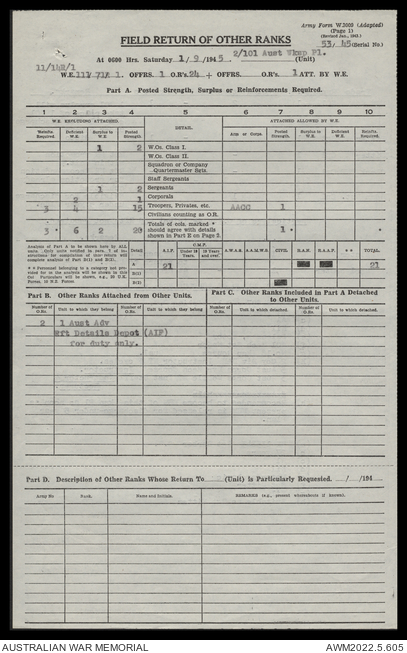 Army Form W.3009 (Adapted)
(Page 1)
(Revised Jan., 1945.)
FIELD RETURN OF OTHER RANKS
53/45 (Serial No.)
At 0600 Hrs. Saturday 1/9/1945 2/101 Aust Wksp Pl. (Unit)
11/142/1
W.E. 1 OFFRS. 1 O.R's. 24 + OFFRS. O.R's. 1 ATT. BY W.E.
Part A. Posted Strength, Surplus or Reinforcements Required.
1 2 3 4 5 6 7 8 9 10
W.E. EXCLUDING ATTACHED. ATTACHED ALLOWED BY W.E.
Reinfts. Required. Deficient W.E. Surplus to W.E. Posted Strength. DETAIL. Arm or Corps. Posted Strength. Surplus to W.E. Deficient W.E. Reinfts. Required.
1 2 W.Os. Class I.
W.Os. Class II.
Squadron or Company Quartermaster Sgts.
Staff Sergeants
1 2 Sergeants
2 1 Corporals
3 4 15 Troopers, Privates, etc. AACC 1
Civilians counting as O.R.
3 * 6 2 20 Totals of cols. marked * should agree with details shown in Part E on Page 2. 1 * *
Analysis of Part A to be shown here by ALL units.
Detail A.I.F. C.M.F. Under 19 Yrs. 19 Years and over. A.W.A.S. A.A.M.W.S. CIVIL R.A.N. R.A.A.F. * * TOTAL
A 21 21
B(1)
B(2)
Part B. Other Ranks Attached from Other Units.
Part C. Other Ranks Included in Part A Detached to Other Units.
Number of O.Rs. Unit to which they belong Number of O.Rs. Unit to which they belong Number of O.Rs. Unit to which detached. Number of O.Rs. Unit to which detached.
2 1 Aust Adv
Rft Details Depot (AIF)
for duty only.
Part D. Description of Other Ranks Whose Return To (Unit) is Particularly Requested. / /194
Army No Rank. Name and Initials. REMARKS (e.g., present whereabouts if known).
AUSTRALIAN WAR MEMORIAL
AWM2022.5.605